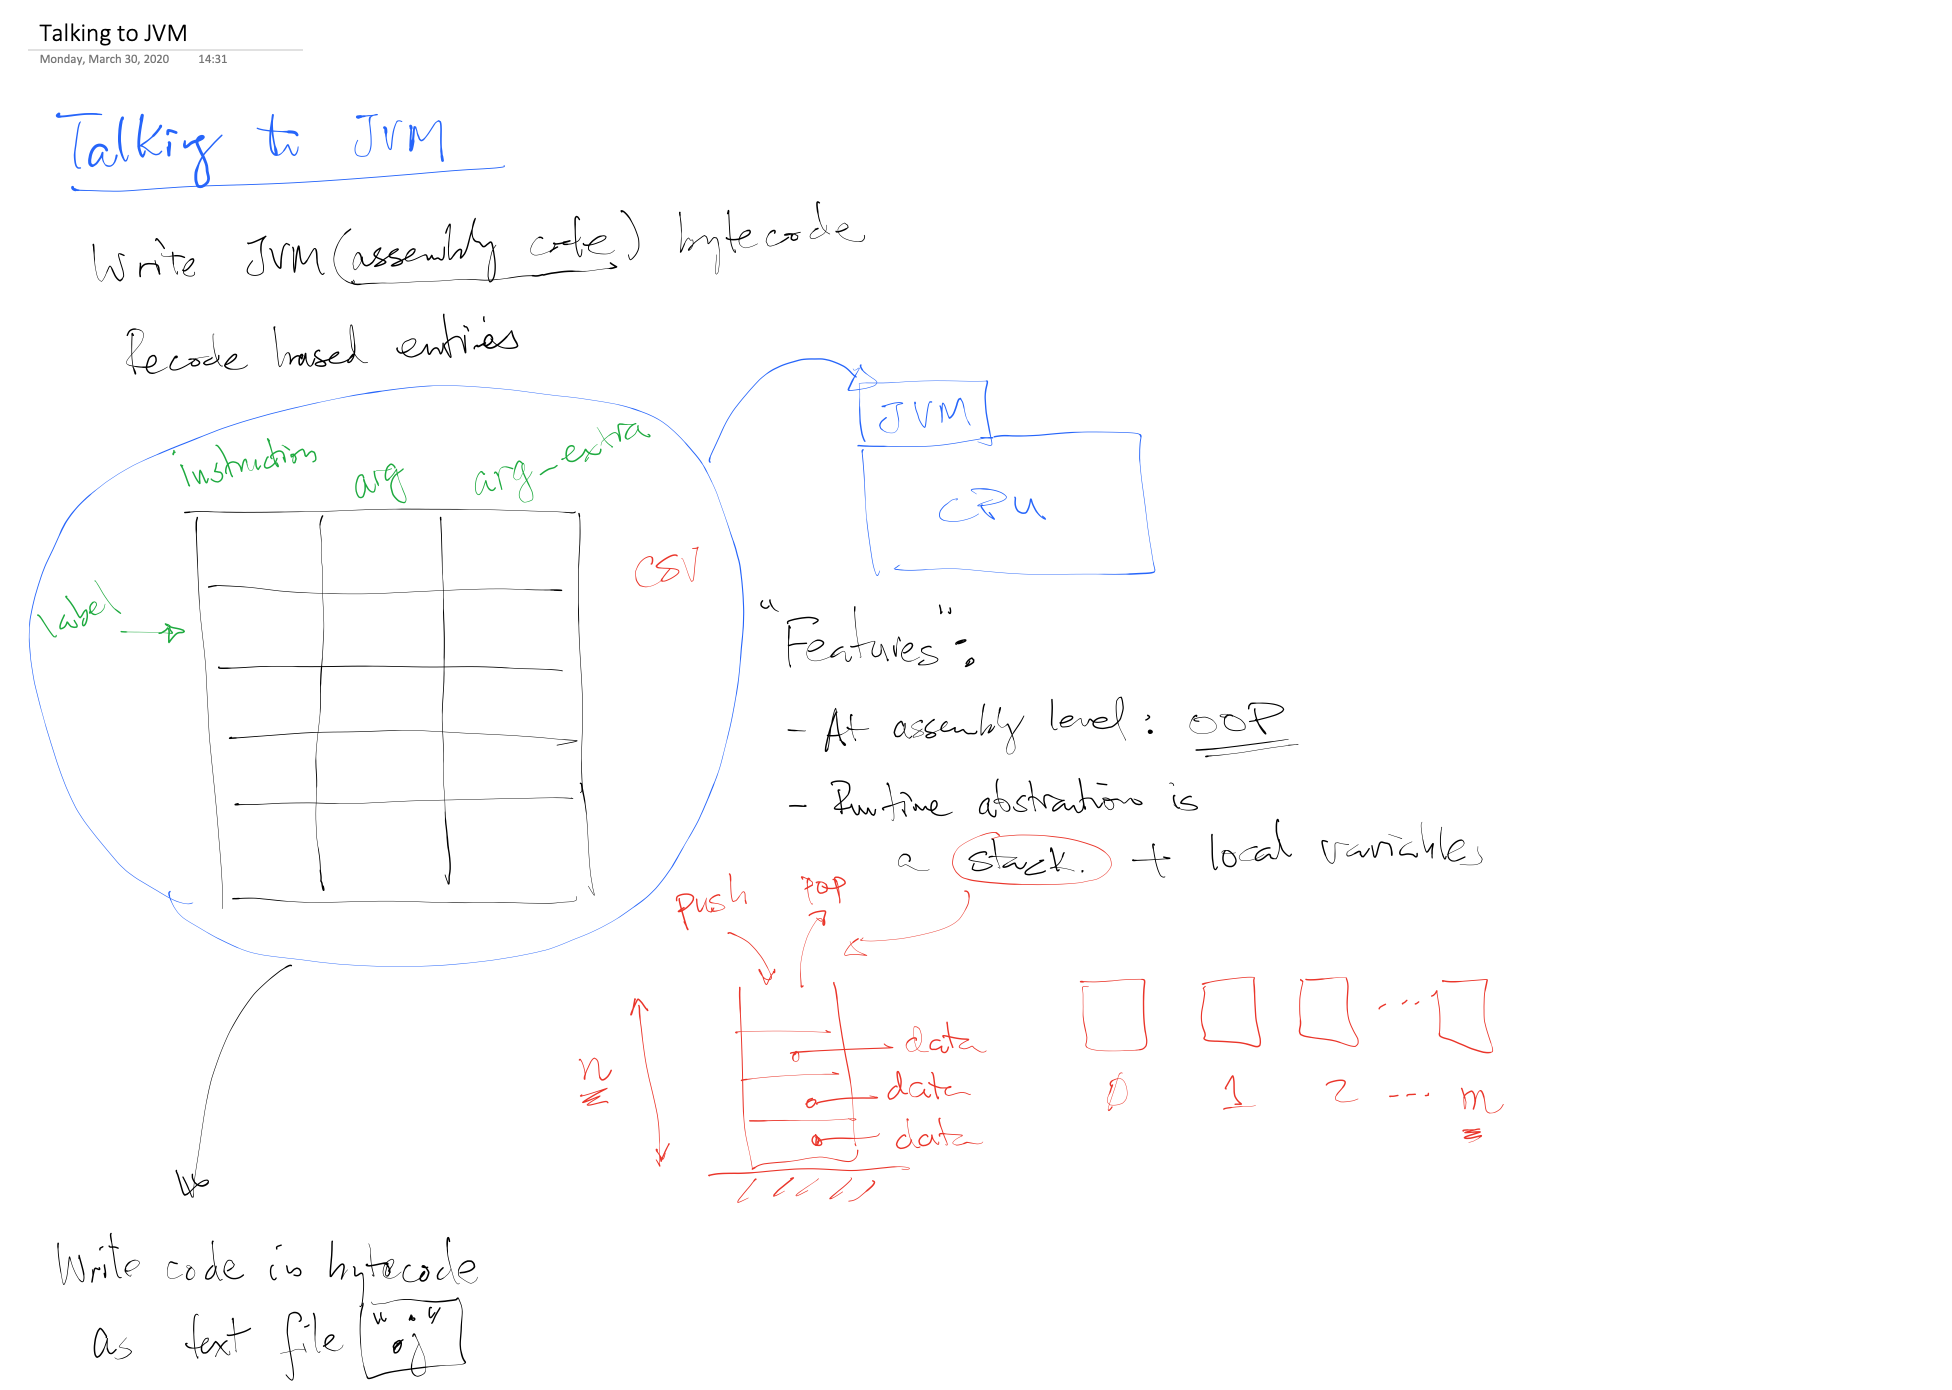 Talking to JVM
Monday, March 30, 2020 14:31
Talking to JVM
Write JVM (assembly code) bytecode
Recode based entries
instruction arg arg_extra
label
CSV
JVM
CPU
"Features":
- At assembly level: OOP
- Runtime abstraction is
a stack. + local variables
push pop
n
data
data
data
0 1 2 ... m
Write code in bytecode
as text file ".j"